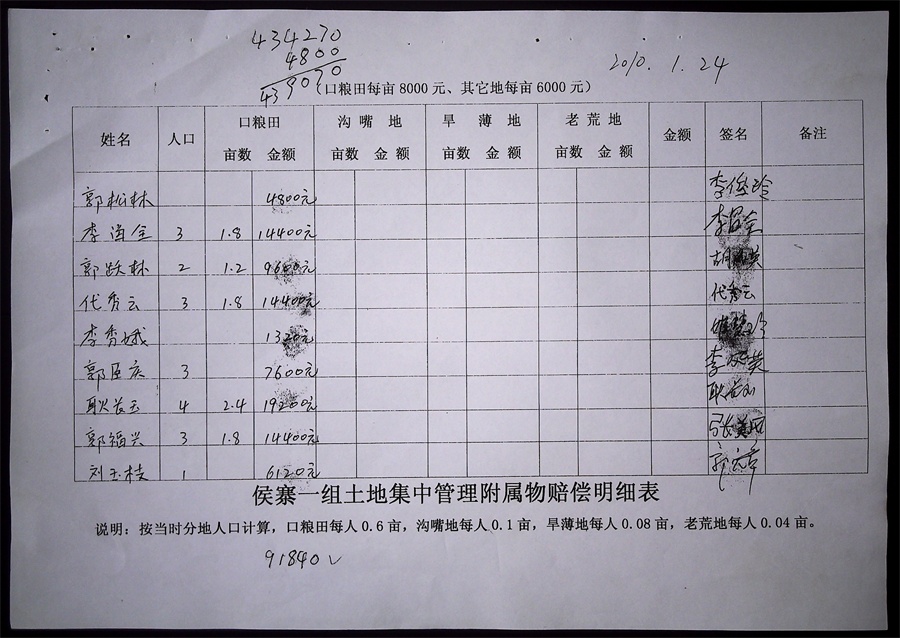 434270
4800
439070
2010.1.24
（口粮田每亩8000元、其它地每亩6000元）
姓名 人口 口粮田 沟嘴地 旱薄地 老荒地 金额 签名 备注
亩数 金额 亩数 金额 亩数 金额 亩数 金额
郭松林 4800元
李 金 3 1.8 14400元
郭跃林 2 1.2 9600元 胡 英
代秀云 3 1.8 14400元 代秀云
李秀娥 1320元
郭臣庆 3 7600元 李 英
耿 玉 4 2.4 19200元 耿
郭福兴 3 1.8 14400元 张
刘玉枝 1 6120元
侯寨一组土地集中管理附属物赔偿明细表
说明：按当时分地人口计算，口粮田每人0.6亩，沟嘴地每人0.1亩，旱薄地每人0.08亩，老荒地每人0.04亩。
91840